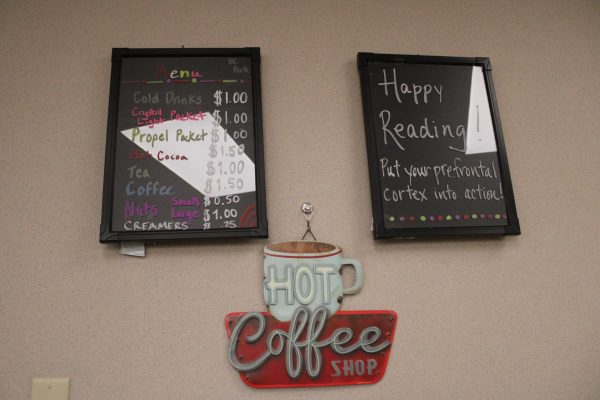 Menu
Cold Drinks $1.00
Crystal Light Packet $1.00
Propel Packet $1.00
Hot Cocoa $1.50
Tea $1.00
Coffee $1.50
Nuts Small $0.50
Large $1.00
CREAMERS $.25
Happy
Reading!
Put your prefrontal
cortex into action!
HOT
Coffee
SHOP